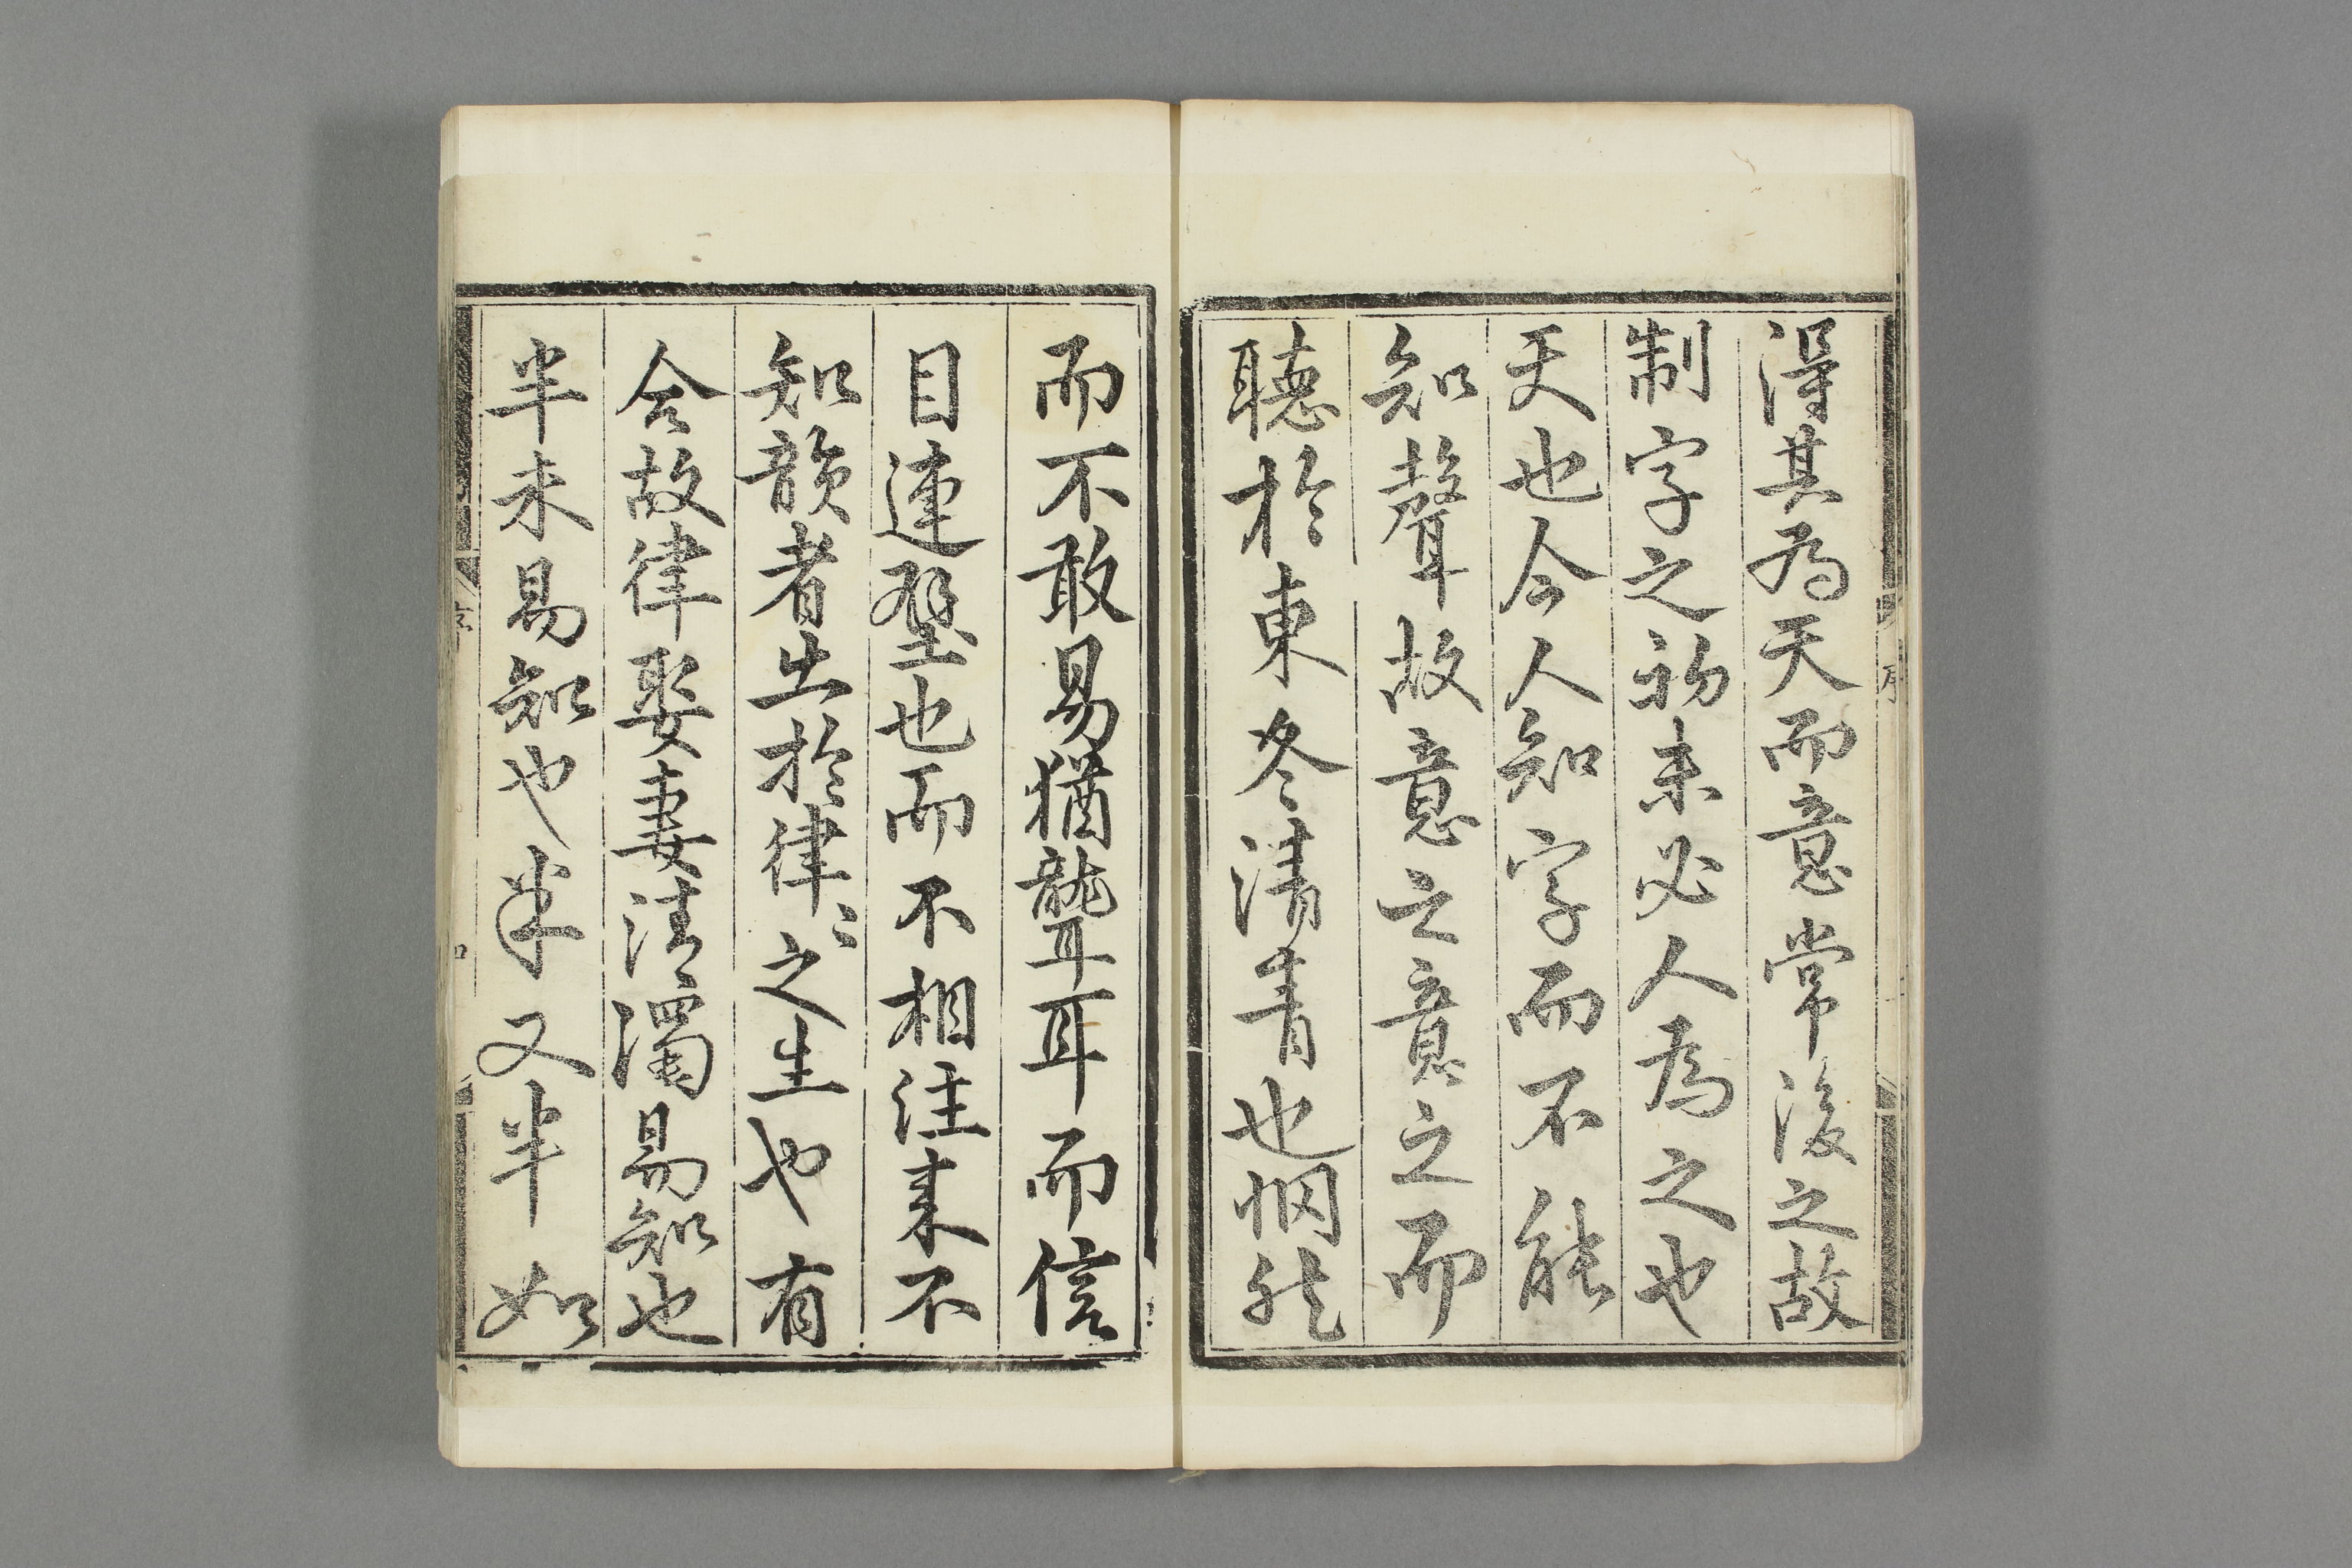 得其為天而意常後之故
制字之初未必人為之也
天也今人知字而不能
知聲故意之意之而
聽於東冬清青也惘然
而不敢易猶聾耳而信
目連壁也而不相往来不
知韻者出於律〻之生也有
合故律娶妻清濁易知也
半未易知也半又半如
序